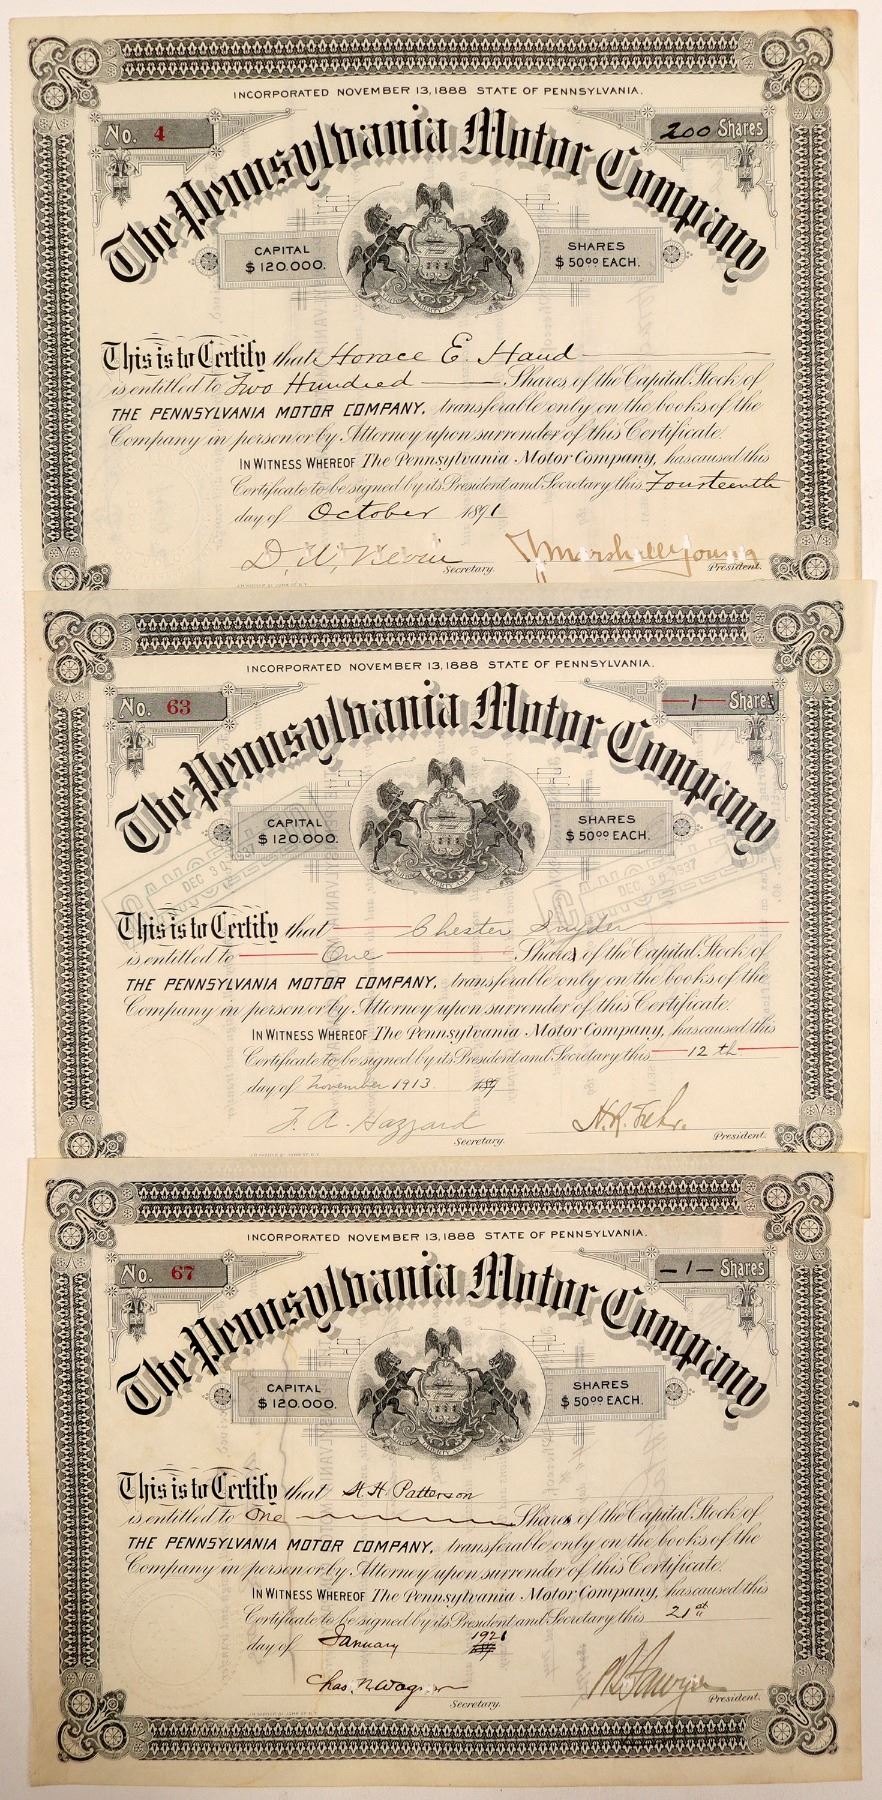 INCORPORATED NOVEMBER 13, 1888 STATE OF PENNSYLVANIA.
No. 4 200 Shares
The Pennsylvania Motor Company
CAPITAL $120.000. SHARES $50⁰⁰ EACH.
This is to Certify that Horace E. Hand
is entitled to Two Hundred Shares of the Capital Stock of
THE PENNSYLVANIA MOTOR COMPANY, transferable only on the books of the
Company in person or by Attorney upon surrender of this Certificate.
IN WITNESS WHEREOF The Pennsylvania Motor Company, has caused this
Certificate to be signed by its President and Secretary this Fourteenth
day of October 1891
D. W. Nevin Secretary. Marshall Young President.
INCORPORATED NOVEMBER 13, 1888 STATE OF PENNSYLVANIA.
No. 63 -1- Share
The Pennsylvania Motor Company
CAPITAL $120.000. SHARES $50⁰⁰ EACH.
CANCELLED DEC 30 1937 CANCELLED DEC 30 1937
This is to Certify that Chester Snyder
is entitled to One Share of the Capital Stock of
THE PENNSYLVANIA MOTOR COMPANY, transferable only on the books of the
Company in person or by Attorney upon surrender of this Certificate.
IN WITNESS WHEREOF The Pennsylvania Motor Company, has caused this
Certificate to be signed by its President and Secretary this 12th
day of November 1913. 189
F. A. Hazzard Secretary. H. R. Fehr. President.
INCORPORATED NOVEMBER 13, 1888 STATE OF PENNSYLVANIA.
No. 67 -1- Shares
The Pennsylvania Motor Company
CAPITAL $120.000. SHARES $50⁰⁰ EACH.
This is to Certify that H. H. Patterson
is entitled to One Shares of the Capital Stock of
THE PENNSYLVANIA MOTOR COMPANY, transferable only on the books of the
Company in person or by Attorney upon surrender of this Certificate.
IN WITNESS WHEREOF The Pennsylvania Motor Company, has caused this
Certificate to be signed by its President and Secretary this 21st
day of January 1921
Chas. N. Wagner Secretary. Sawyer President.